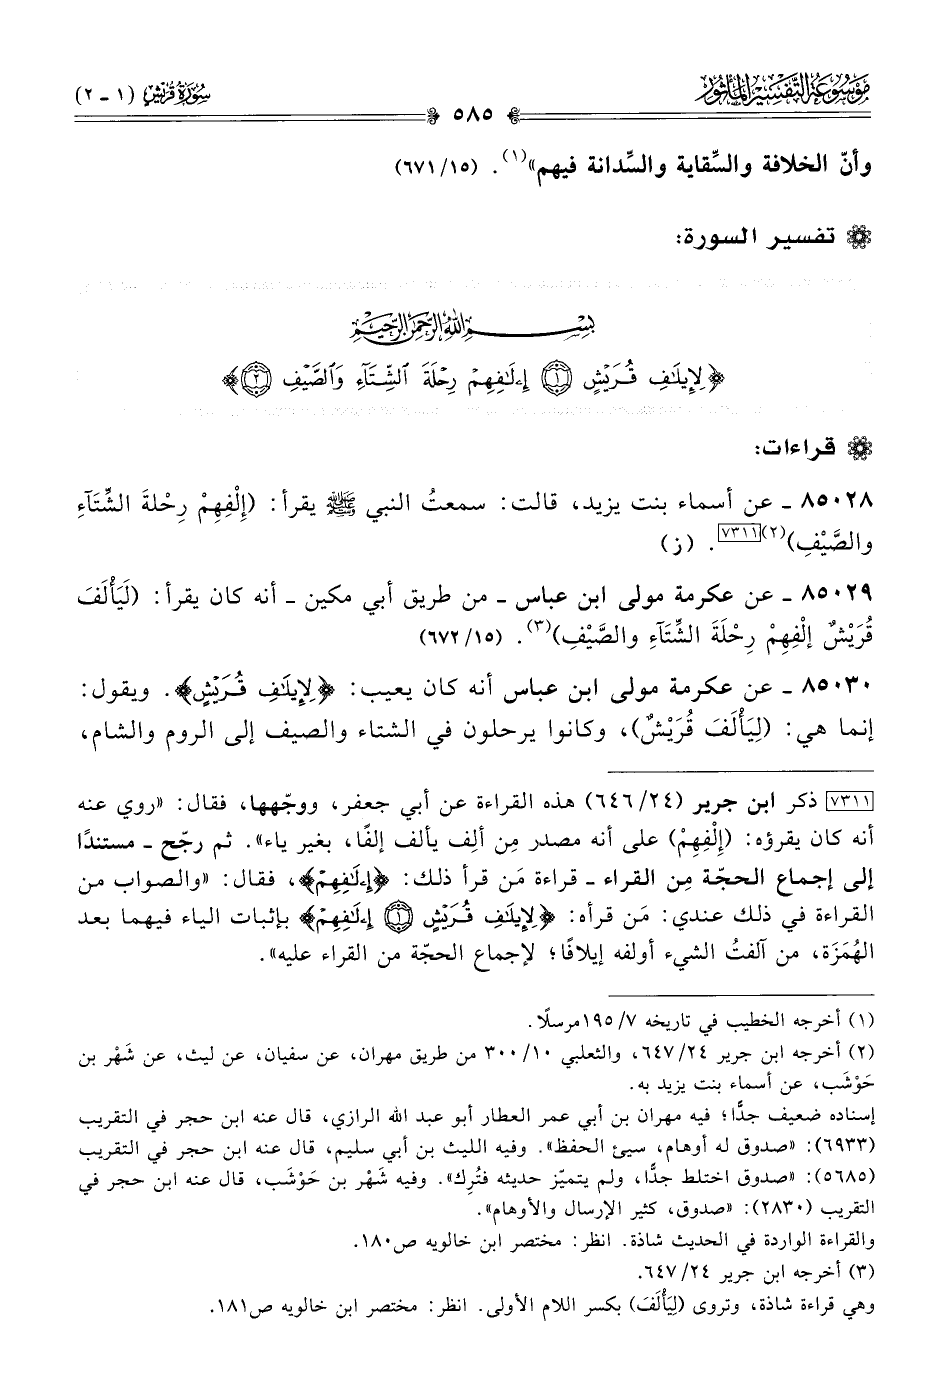 مَوْسُوعَةُ التَّفْسِيرِ المَأْثُورِ
سُورَةُ قُرَيْشٍ (١ - ٢)
٥٨٥
وأنّ الخلافة والسِّقاية والسِّدانة فيهم»(١). (٦٧١/١٥)
تفسير السورة:
بِسْمِ اللهِ الرَّحْمٰنِ الرَّحِيمِ
﴿لِإِيلَٰفِ قُرَيْشٍ ١ إِۦلَٰفِهِمْ رِحْلَةَ ٱلشِّتَآءِ وَٱلصَّيْفِ ٢﴾
قراءات:
٨٥٠٢٨ ـ عن أسماء بنت يزيد، قالت: سمعتُ النبي ﷺ يقرأ: (إِلْفِهِمْ رِحْلةَ الشِّتَآءِ
والصَّيْفِ)(٢)[٧٣١١]. (ز)
٨٥٠٢٩ ـ عن عكرمة مولى ابن عباس ـ من طريق أبي مكين ـ أنه كان يقرأ: (لَيَأْلَفَ
قُرَيْشٌ إلْفِهِمْ رِحْلَةَ الشِّتَآءِ والصَّيْفِ)(٣). (٦٧٢/١٥)
٨٥٠٣٠ ـ عن عكرمة مولى ابن عباس أنه كان يعيب: ﴿لِإِيلَٰفِ قُرَيْشٍ﴾. ويقول:
إنما هي: (لِيَأْلَفَ قُرَيْشٌ)، وكانوا يرحلون في الشتاء والصيف إلى الروم والشام،
[٧٣١١] ذكر ابن جرير (٦٤٦/٢٤) هذه القراءة عن أبي جعفر، ووجّهها، فقال: «روي عنه
أنه كان يقرؤه: (إِلْفِهِمْ) على أنه مصدر مِن ألِف يألف إلفًا، بغير ياء». ثم رجّح ـ مستندًا
إلى إجماع الحجّة مِن القراء ـ قراءة مَن قرأ ذلك: ﴿إِۦلَٰفِهِمْ﴾، فقال: «والصواب من
القراءة في ذلك عندي: مَن قرأه: ﴿لِإِيلَٰفِ قُرَيْشٍ ١ إِۦلَٰفِهِمْ﴾ بإثبات الياء فيهما بعد
الهُمَزَة، من آلفتُ الشيء أولفه إيلافًا؛ لإجماع الحجّة من القراء عليه».
(١) أخرجه الخطيب في تاريخه ١٩٥/٧مرسلًا.
(٢) أخرجه ابن جرير ٦٤٧/٢٤، والثعلبي ٣٠٠/١٠ من طريق مهران، عن سفيان، عن ليث، عن شَهْر بن
حَوْشَب، عن أسماء بنت يزيد به.
إسناده ضعيف جدًّا؛ فيه مهران بن أبي عمر العطار أبو عبد الله الرازي، قال عنه ابن حجر في التقريب
(٦٩٣٣): «صدوق له أوهام، سيئ الحفظ». وفيه الليث بن أبي سليم، قال عنه ابن حجر في التقريب
(٥٦٨٥): «صدوق اختلط جدًّا، ولم يتميّز حديثه فتُرِك». وفيه شَهْر بن حَوْشَب، قال عنه ابن حجر في
التقريب (٢٨٣٠): «صدوق، كثير الإرسال والأوهام».
والقراءة الواردة في الحديث شاذة. انظر: مختصر ابن خالويه ص١٨٠.
(٣) أخرجه ابن جرير ٦٤٧/٢٤.
وهي قراءة شاذة، وتروى (لِيَأْلَفَ) بكسر اللام الأولى. انظر: مختصر ابن خالويه ص١٨١.